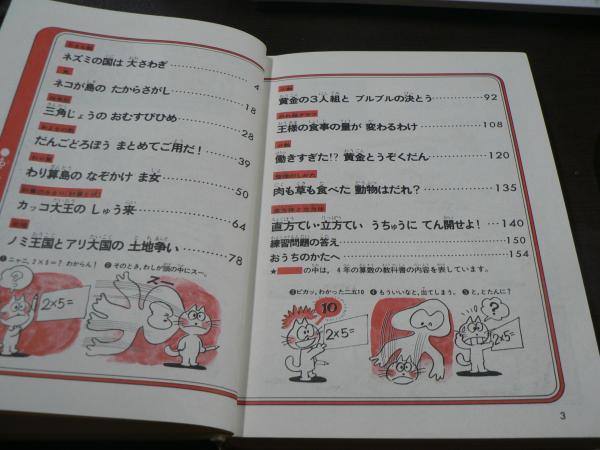 ネズミの国は 大さわぎ 4
ネコが島の たからさがし 18
三角じょうの おむすびひめ 28
だんごどろぼう まとめてご用だ! 39
わり算島の なぞかけ ま女 50
カッコ大王の しゅう来 64
ノミ王国とアリ大国の 土地争い 78
❶ニャニ、2×5=?わからん!
❷そのとき、わしが頭の中にスー。
スー
2×5=
黄金の3人組と ブルブルの決とう 92
王様の食事の量が 変わるわけ 108
働きすぎた!? 黄金とうぞくだん 120
肉も草も食べた 動物はだれ? 135
直方体と立方体
直方てい・立方てい うちゅうに てん開せよ! 140
練習問題の答え 150
おうちのかたへ 154
★ の中は、4年の算数の教科書の内容を表しています。
❸ピカッ。わかった二五10
❹もういいなと、出てしまう。
❺と、とたんに?
10
2×5=
?
2×5=
3